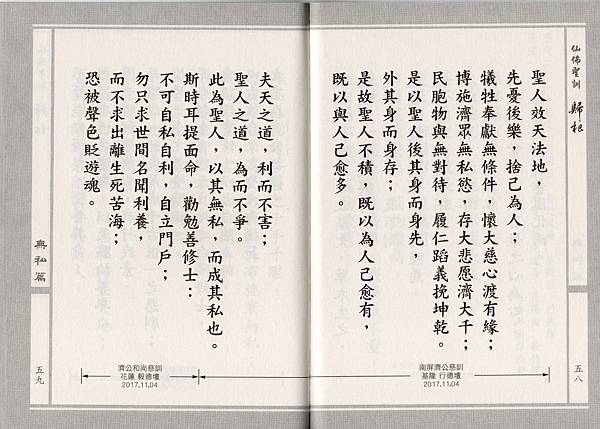 仙佛聖訓 歸根
聖人效天法地，
先憂後樂，捨己為人；
犧牲奉獻無條件，懷大慈心渡有緣；
博施濟眾無私慾，存大悲愿濟大千；
民胞物與無對待，履仁蹈義挽坤乾。
是以聖人後其身而身先，
外其身而身存；
是故聖人不積，既以為人己愈有，
既以與人己愈多。
南屏濟公慈訓
基隆 行德壇
2017.11.04
五八
夫天之道，利而不害；
聖人之道，為而不爭。
此為聖人，以其無私，而成其私也。
斯時耳提面命，勸勉善修士：
不可自私自利，自立門戶；
勿只求世間名聞利養，
而不求出離生死苦海；
恐被聲色貶遊魂。
濟公和尚慈訓
花蓮 毅德壇
2017.11.04
無私篇
五九